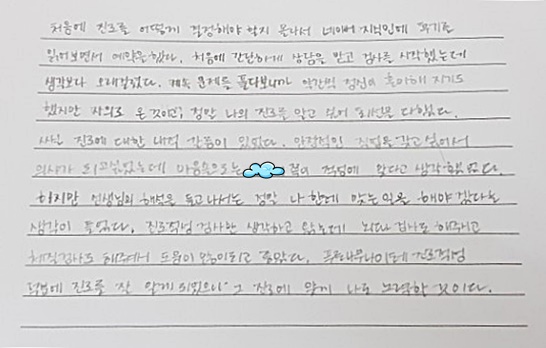 처음에 진로를 어떻게 결정해야 할지 몰라서 네이버 지식인에 후기를
읽어보면서 예약을 했다. 처음에 간단하게 상담을 받고 검사를 시작했는데
생각보다 오래걸렸다. 계속 문제를 풀다보니까 약간의 정신이 혼미해 지기도
했지만 자의로 온 것이고 정말 나의 진로를 알고 싶어 최선을 다했다.
사실 진로에 대한 내적 갈등이 있었다. 안정적인 직업을 갖고 싶어서
의사가 되고싶었는데 마음속으로는 적성에 맞다고 생각했었다.
하지만 선생님의 해석을 듣고나서는 정말 나한테 맞는 일을 해야겠다는
생각이 들었다. 진로적성검사만 생각하고 왔는데 뇌파검사도 해주시고
체질검사도 해주셔서 도움이 많이되고 좋았다. 진로적성
덕분에 진로를 잘 알게 되었으니 그 진로에 맞게 나도 노력할 것이다.